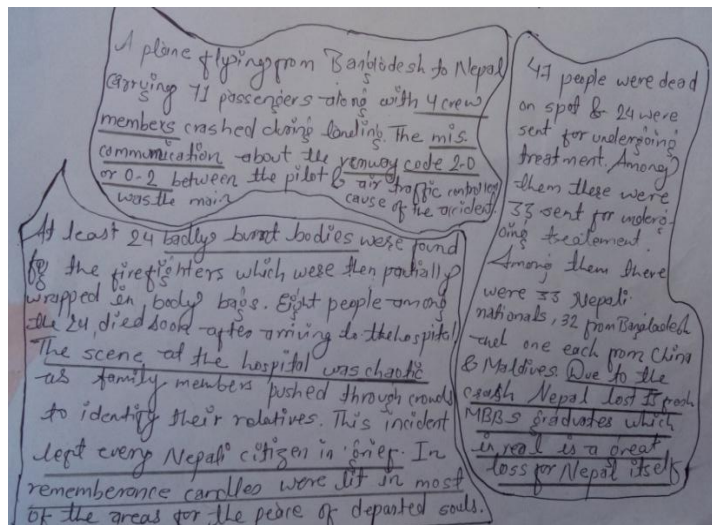 A plane flying from Bangladesh to Nepal
carrying 71 passengers along with 4 crew
members crashed during landing. The mis.
communication about the runway code 2-0
or 0-2 between the pilot & air traffic controller
was the main cause of the accident.
At least 24 badly burnt bodies were found
by the firefighters which were then partially
wrapped in body bags. Eight people among
the 24, died soon after arriving to the hospital
The scene at the hospital was chaotic
as family members pushed through crowds
to identify their relatives. This incident
left every Nepali citizen in grief. In
rememberance candles were lit in most
of the areas for the peace of departed souls.
47 people were dead
on spot & 24 were
sent for undergoing
treatment. Among
them there were
33 sent for underg-
oing treatement.
Among them there
were 33 Nepali
nationals, 32 from Bangladesh
and one each from China
& Maldives. Due to the
crash Nepal lost 13 fresh
MBBS graduates which
in real is a great
loss for Nepal itself